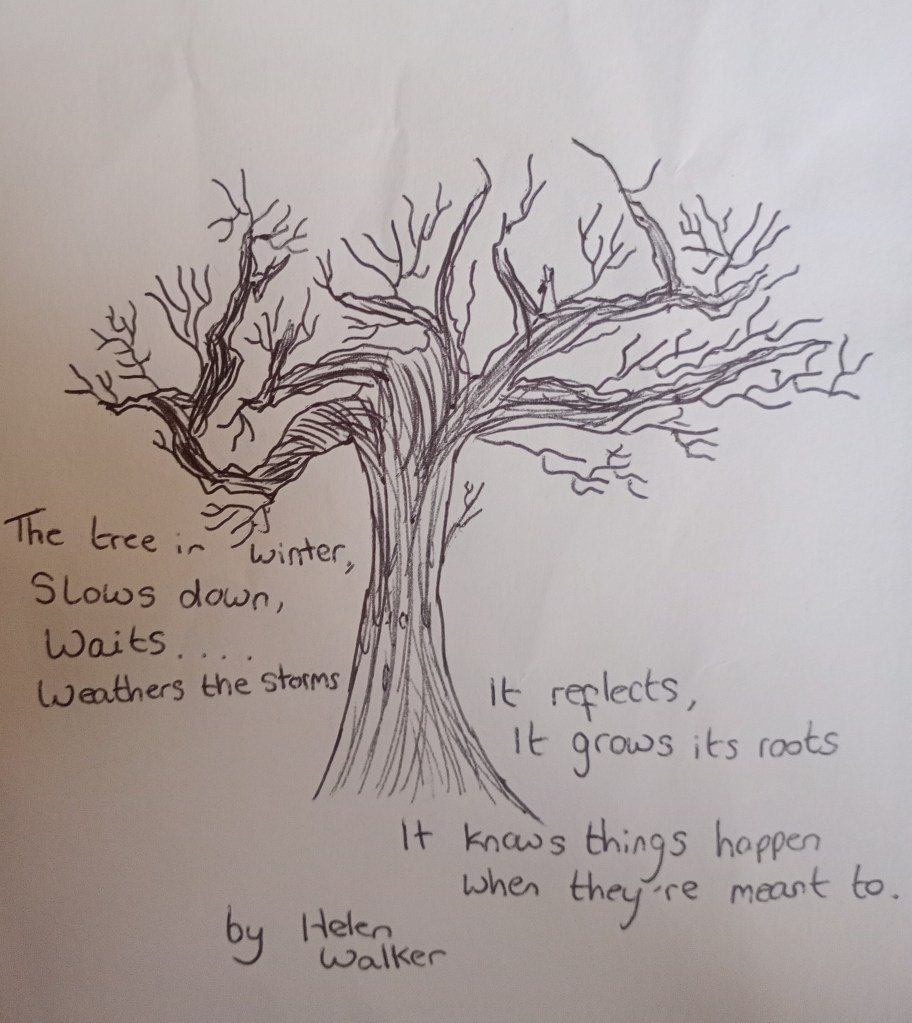 The tree in winter,
Slows down,
Waits....
Weathers the storms
it reflects,
It grows its roots
It knows things happen
when they're meant to.
by Helen
Walker